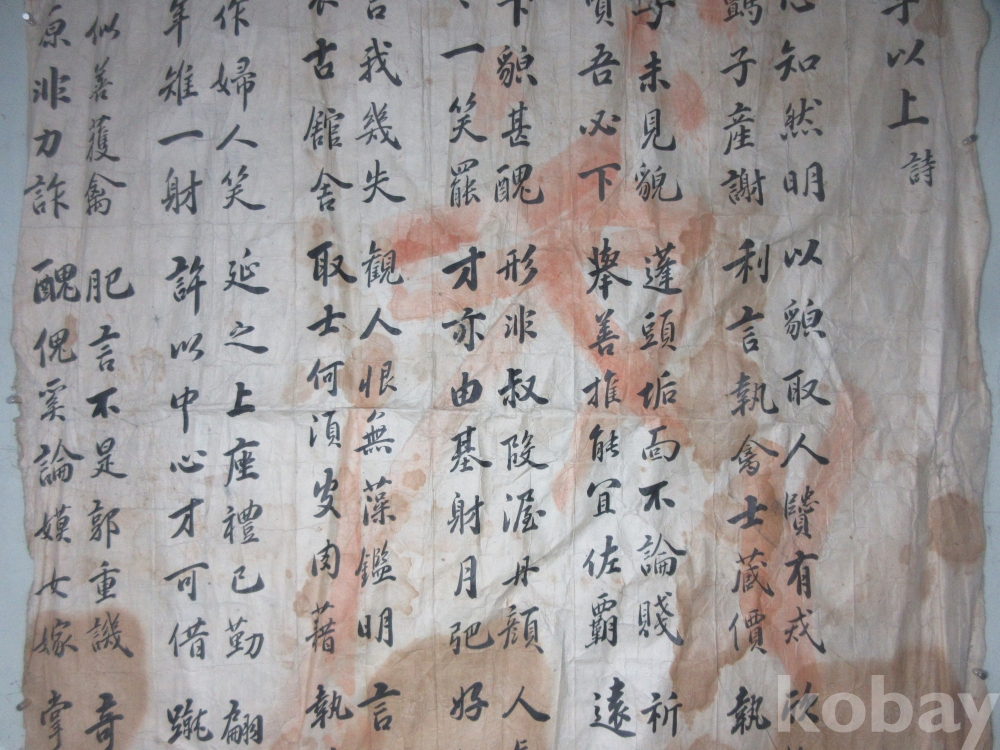 以上 詩
知然明 以貌取人贒有戒
子産謝 利言執禽士蔵價 執
子未見貌 蓬頭垢面不論賤 祈
吾必下 擧善推能宜佐霸 遠
下貌甚醜 形非叔段渥丹顔 人
一笑罷 才亦由基射月弝 好
言我幾失 觀人恨無藻鑑明 言
古舘舍 取士何須皮肉藉 執
作婦人笑 延之上座禮已勤 翩
年雉一射 許以中心才可借 蹴
似善獲禽 肥言不是郭重譏 奇
原非力詐 醜傀奚論嫫女嫁 掌
kobay